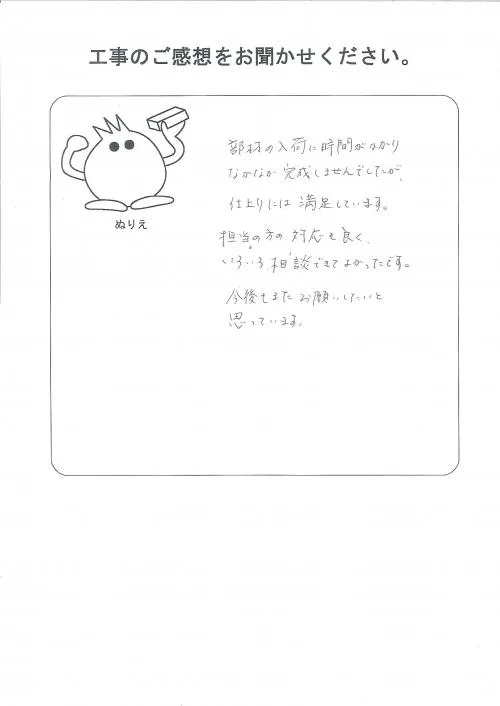 工事のご感想をお聞かせください。
ぬりえ
部材の入荷に時間がかかり
なかなか完成しませんでしたが、
仕上りには満足しています。
担当の方の対応も良く、
いろいろ相談できてよかったです。
今後もまたお願いしたいと
思っています。